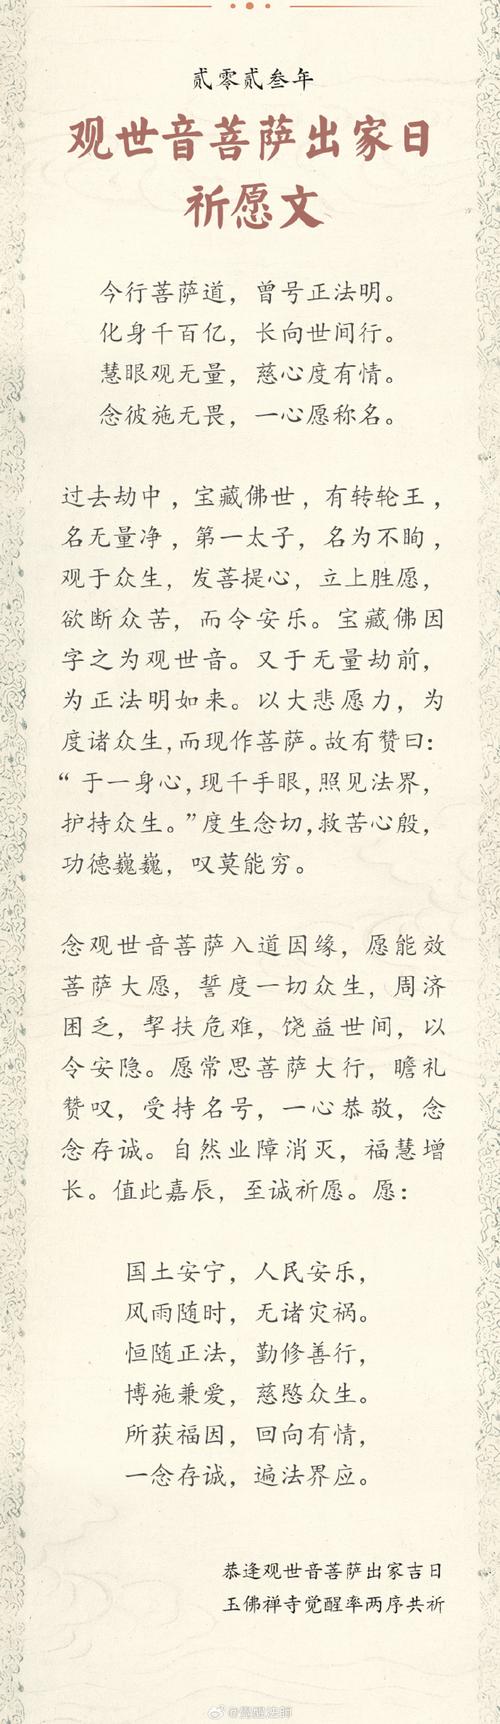 贰零贰叁年
观世音菩萨出家日
祈愿文
今行菩萨道，曾号正法明。
化身千百亿，长向世间行。
慧眼观无量，慈心度有情。
念彼施无畏，一心愿称名。
过去劫中，宝藏佛世，有转轮王，
名无量净，第一太子，名为不眴，
观于众生，发菩提心，立上胜愿，
欲断众苦，而令安乐。宝藏佛因
字之为观世音。又于无量劫前，
为正法明如来。以大悲愿力，为
度诸众生，而现作菩萨。故有赞曰：
“于一身心，现千手眼，照见法界，
护持众生。”度生念切，救苦心殷，
功德巍巍，叹莫能穷。
念观世音菩萨入道因缘，愿能效
菩萨大愿，誓度一切众生，周济
困乏，挈扶危难，饶益世间，以
令安隐。愿常思菩萨大行，瞻礼
赞叹，受持名号，一心恭敬，念
念存诚。自然业障消灭，福慧增
长。值此嘉辰，至诚祈愿。愿：
国土安宁，人民安乐，
风雨随时，无诸灾祸。
恒随正法，勤修善行，
博施兼爱，慈愍众生。
所获福因，回向有情，
一念存诚，遍法界应。
恭逢观世音菩萨出家吉日
玉佛禅寺觉醒率两序共祈
@覺醒法師